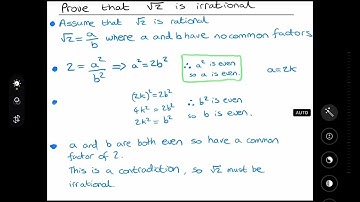 Prove that √2 is irrational
• Assume that √2 is rational
√2 = a/b where a and b have no common factors
• 2 = a²/b² ⇒ a² = 2b²
∴ a² is even
so a is even.
a = 2k
• (2k)² = 2b²
4k² = 2b²
2k² = b²
∴ b² is even
so b is even.
• a and b are both even so have a common
factor of 2.
This is a contradiction, so √2 must be
irrational
AUTO